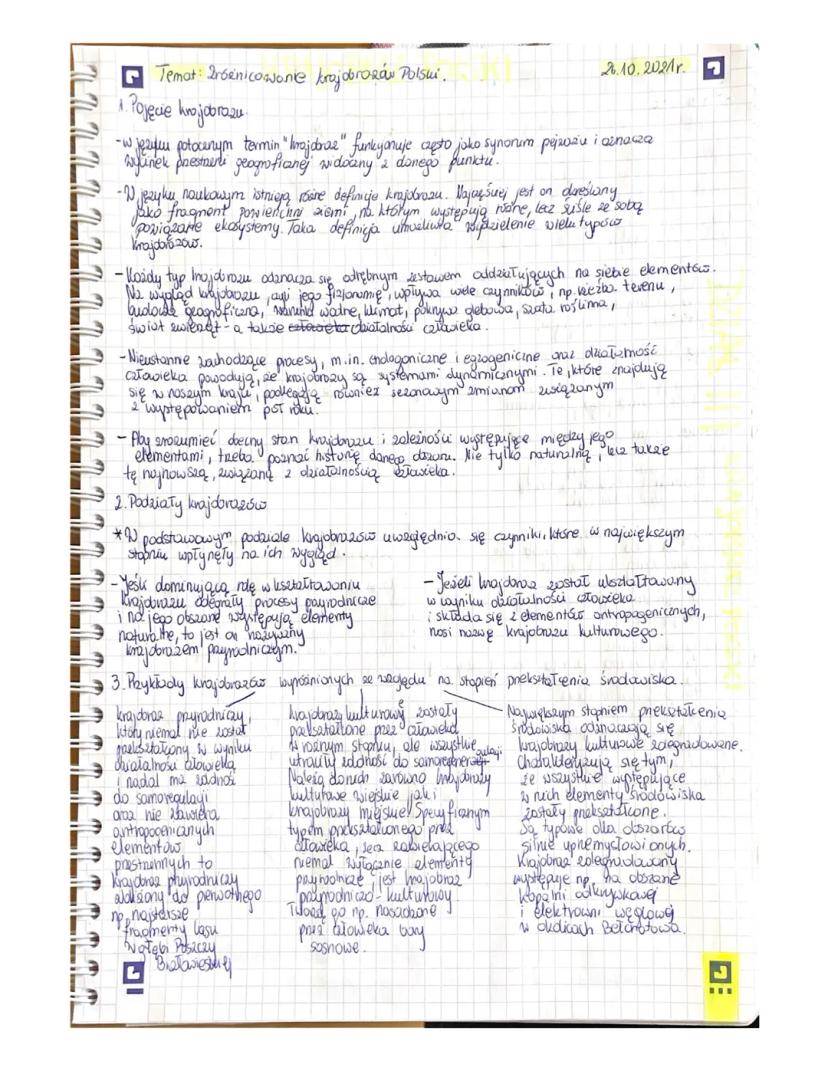 Temat: Zróżnicowanie krajobrazów Polski.
26.10.2021r.
1. Pojęcie krajobrazu
-w języku potocznym termin "krajobraz" funkcjonuje często jako synonim pejzażu i oznacza
wycinek przestrzeni geograficznej widoczny z danego punktu.
-W języku naukowym istnieją różne definicje krajobrazu. Najczęściej jest on określany
jako fragment powierzchni ziemi, na którym występują różne, lecz ściśle ze sobą
powiązane ekosystemy. Taka definicja umożliwia wydzielenie wielu typów
krajobrazów.
-Każdy typ krajobrazu odznacza się odrębnym zestawem oddziałujących na siebie elementów.
Na wygląd krajobrazu, czyli jego fizjonomię, wpływa wiele czynników, np. rzeźba terenu,
budowa geograficzna, warunki wodne, klimat, pokrywa glebowa, szata roślinna,
świat zwierząt - a także człowieka działalność człowieka.
-Nieustannie zachodzące procesy, m.in. endogeniczne i egzogeniczne oraz działalność
człowieka powodują, że krajobrazy są systemami dynamicznymi. Te, które znajdują
się w naszym kraju, podlegają również sezonowym zmianom związanym
z występowaniem pór roku.
- Aby zrozumieć obecny stan krajobrazu i zależności występujące między jego
elementami, trzeba poznać historię danego obszaru. Nie tylko naturalną, lecz także
tę najnowszą, związaną z działalnością człowieka.
2. Podziały krajobrazów
*W podstawowym podziale krajobrazów uwzględnia się czynniki, które w największym
stopniu wpłynęły na ich wygląd.
-Jeśli dominującą rolę w kształtowaniu
krajobrazu odegrały procesy przyrodnicze
i na jego obszarze występują elementy
naturalne, to jest on nazywany
krajobrazem przyrodniczym.
-Jeżeli krajobraz został ukształtowany
w wyniku działalności człowieka
i składa się z elementów antropogenicznych,
nosi nazwę krajobrazu kulturowego.
3. Przykłady krajobrazów wyróżnionych ze względu na stopień przekształcenia środowiska.
krajobraz przyrodniczy,
który niemal nie został
przekształcony w wyniku
działalności człowieka
i nadal ma zdolność
do samoregulacji
oraz nie zawiera
antropogenicznych
elementów
przestrzennych to
krajobraz przyrodniczy
zbliżony do pierwotnego
np. najstarsze
fragmenty lasu
w głębi Puszczy
Białowieskiej
krajobrazy kulturowe zostały
przekształcone przez człowieka
w różnym stopniu, ale wszystkie
utraciły zdolność do samoregulacji
Należą do nich zarówno krajobrazy
kulturowe wiejskie jak i
krajobrazy miejskie. Specyficznym
typem przekształconego przez
człowieka, lecz zawierającego
niemal wyłącznie elementy
przyrodnicze, jest krajobraz
przyrodniczo-kulturowy.
Tworzą go np. nasadzone
przez człowieka bory
sosnowe.
Największym stopniem przekształcenia
środowiska odznaczają się
krajobrazy kulturowe zdegradowane.
Charakteryzują się tym,
że wszystkie występujące
w nich elementy środowiska
zostały przekształcone.
Są typowe dla obszarów
silnie uprzemysłowionych.
Krajobraz zdegradowany
występuje np. na obszarze
kopalni odkrywkowej
i elektrowni węglowej
w okolicach Bełchatowa.